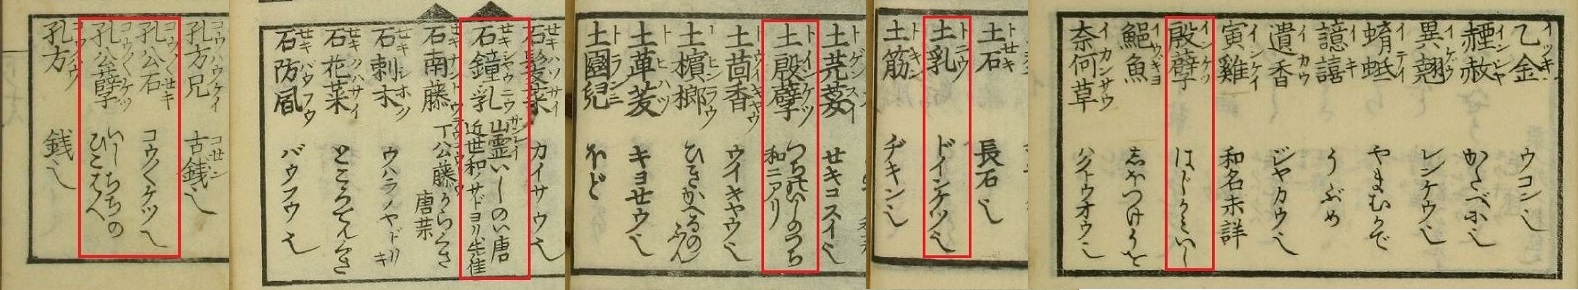 乙金 イツキン ウコン也
赭赦 インシヤ
異翹 イケウ レンケウ也
蝟蚳 イテイ やまむかで
譩譆 イキ うぶめ
遺香 イカウ ジヤカウ也
寅雞 インケイ 和名未詳
殷孽 インケツ
鮧魚 イウギヨ
奈何草 イカンサウ ハクトウオウ也
土石 トセキ 長石也
土乳 トニウ ドインケツ也
土筋 トキン ヂキン也
土芫荽 トゲンスイ セキコスイ也
土殷孽 トインケツ つちのいしのつち 和ニアリ
土茴香 トウイキヤウ ウイキヤウ也
土檳榔 トヒンラウ ひきかへるのふん
土蓽茇 トヒハツ キヨせウ也
土圞兒 トランニ ほど
石髮菜 せキハツサイ カイサウ也
石鐘乳 せキシヤウニウ 山霊いしのい唐
近世和ノサドヨリ出佳
石南藤 せキナントウ 丁公藤 からくさ 唐葉
石刺木 せキシホク ウハラノヤドリキ
石花菜 せキハナサイ ところてんくさ
石防風 せキバウフウ バウフウ也
孔方兄 コウハウケイ 古銭也
孔公石 コウくせキ コウくケツ也
孔公孽 コウくケツ いしちちの
孔方 コウハウ 銭也